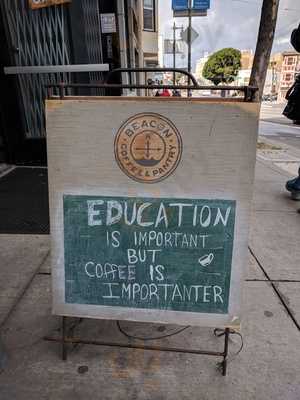 BEACON
COFFEE & PANTRY
EDUCATION
IS IMPORTANT
BUT
COFFEE IS
IMPORTANTER